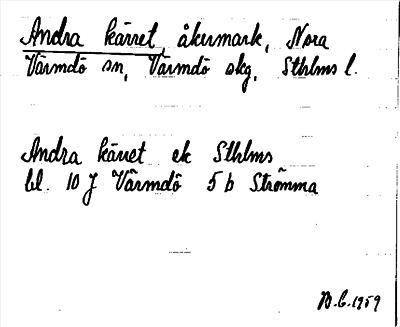 Andra kärret, åkermark, Nora
Värmdö sn, Värmdö skg, Sthlms l.
Andra kärret ek Sthlms
bl. 10 J Värmdö 5 b Strömma
B.C. 1959